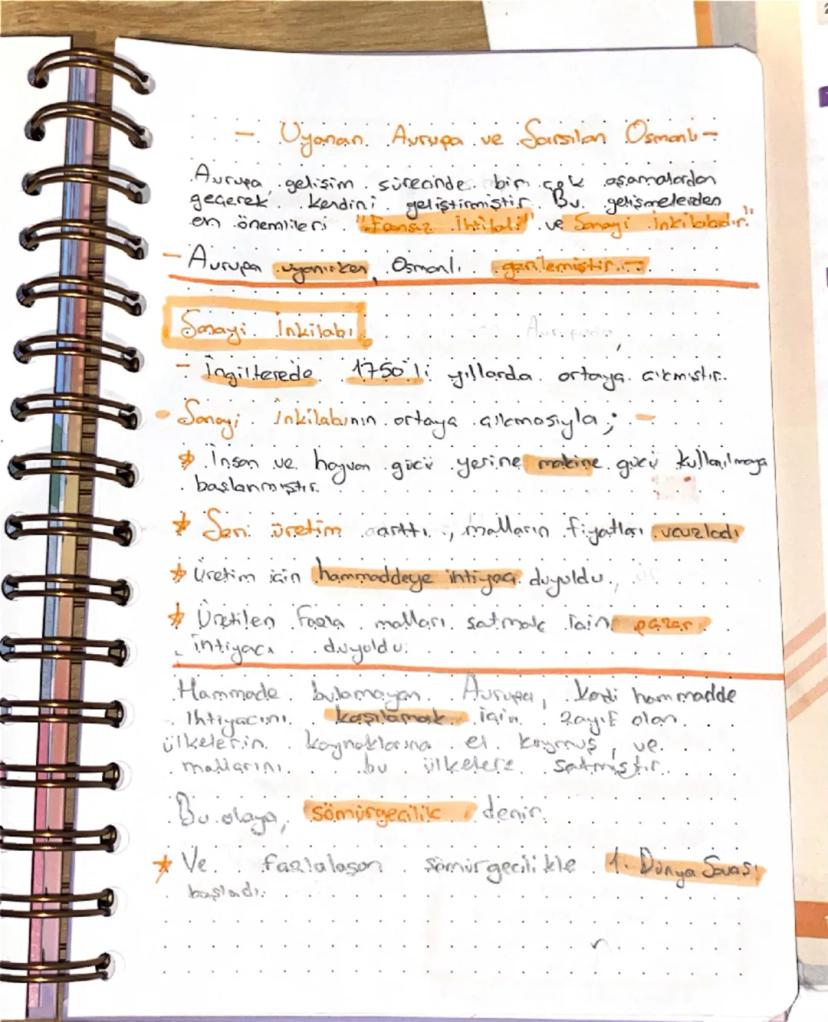 - Uyanan Avrupa ve Sarsılan Osmanlı -
Avrupa, gelişim sürecinde bir çok aşamalardan
geçerek kendini geliştirmiştir. Bu gelişmelerden
en önemlileri "Fransız İhtilali" ve Sanayi İnkilabıdır."
- Avrupa uyanırken, Osmanlı gerilemiştir...
Sanayi İnkilabı
- İngilterede 1750'li yıllarda ortaya çıkmıştır.
- Sanayi inkilabının ortaya çıkmasıyla; -
* İnsan ve hayvan gücü yerine makine gücü kullanılmaya
başlanmıştır.
* Seri üretim arttı, malların fiyatları ucuzladı
* Üretim için hammaddeye ihtiyaç duyuldu.
* Üretilen fazla malları satmak için pazar
intiyacı duyuldu.
Hammade bulamayan Avrupa, kendi hammadde
ihtiyacını karşılamak için zayıf olan
ülkelerin kaynaklarına el koymuş, ve
mallarını bu ülkelere satmıştır.
Bu olaya, sömürgecilik denir.
* Ve fazlalaşan sömürgecilikle 1. Dünya Savaşı
başladı.